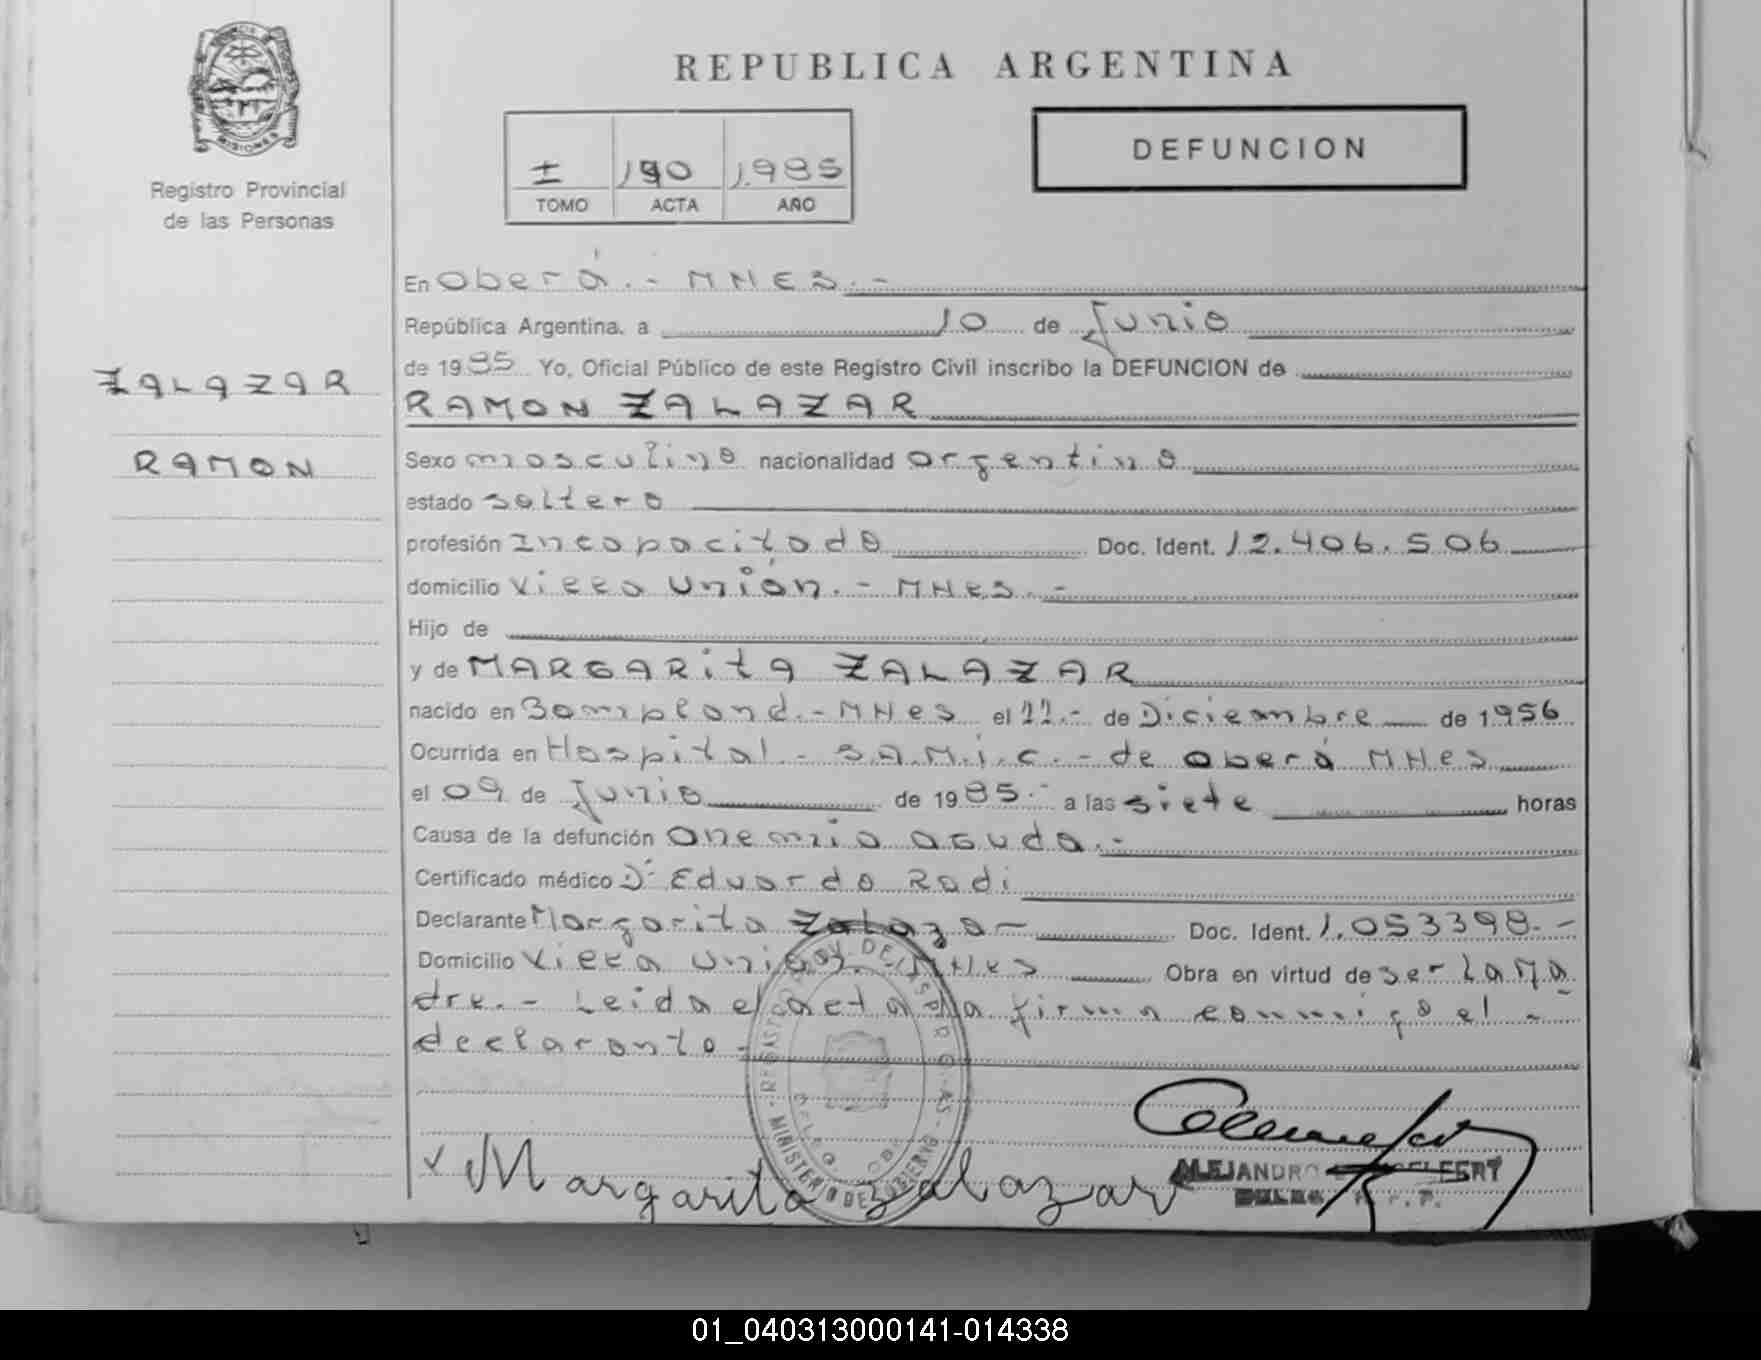 PROVINCIA DE MISIONES
Registro Provincial
de las Personas
REPUBLICA ARGENTINA
DEFUNCION
I 190 1.985
TOMO ACTA AÑO
En Oberá.- MNES.-
República Argentina, a 10 de Junio
de 1985 Yo, Oficial Público de este Registro Civil inscribo la DEFUNCION de
ZALAZAR
RAMON ZALAZAR
RAMON
Sexo masculino nacionalidad argentino
estado soltero
profesión Incapacitado Doc. Ident. 12.406.506
domicilio Villa Unión.- MNes.-
Hijo de
y de MARGARitA ZALAZAR
nacido en Bompland.- MNes el 22.- de Diciembre de 1956
Ocurrida en Hospital.- S.A.M.i.c.- de Oberá MNes
el 09 de Junio de 1985.- a las siete horas
Causa de la defunción anemia aguda.-
Certificado médico Dr Eduardo Radi
Declarante Margarita Zalazar Doc. Ident. 1.053398.-
Domicilio Villa Unión MNes Obra en virtud de ser La Ma
dre.- Leida el acta la firma conmigo el -
declarante-
REGISTRO PROV. DE LAS PERSONAS - MINISTERIO DE GOBIERNO -
Margarita Zalazar
ALEJANDRO
01_040313000141-014338